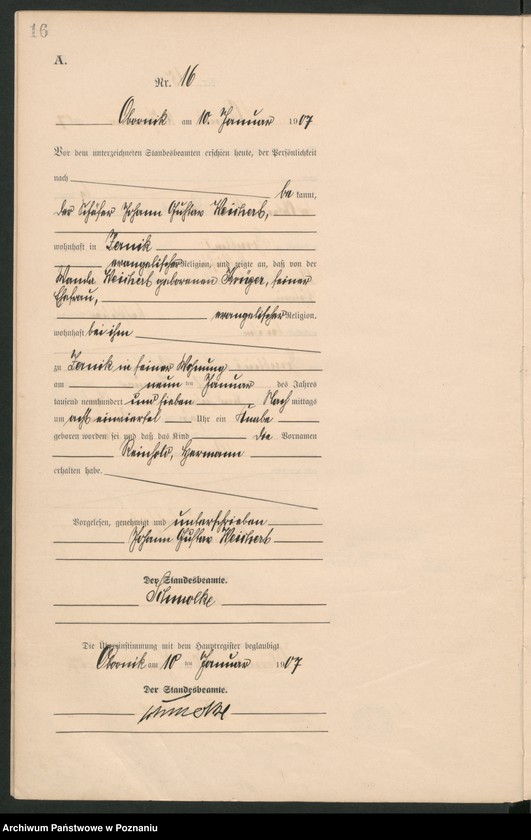 16
A.
Nr. 16
Obornik am 10. Januar 1907
Vor dem unterzeichneten Standesbeamten erschien heute, der Persönlichkeit
nach be kannt,
der Schäfer Johann Gustav Weichert,
wohnhaft in Zernik
evangelischer Religion, und zeigte an, daß von der
Wanda Weichert geborenen Krüger, seiner
Ehefrau,
evangelischer Religion,
wohnhaft bei ihm
zu Zernik in seiner Wohnung
am neun ten Januar des Jahres
tausend neunhundert und sieben Nach mittags
um acht einviertel Uhr ein Knabe
geboren worden sei und daß das Kind die Vornamen
Reinhold, Hermann
erhalten habe.
Vorgelesen, genehmigt und unterschrieben
Johann Gustav Weichert
Der Standesbeamte.
Schmolke
Die Übereinstimmung mit dem Hauptregister beglaubigt
Obornik am 10 ten Januar 1907
Der Standesbeamte.
Schmolke
Archiwum Państwowe w Poznaniu